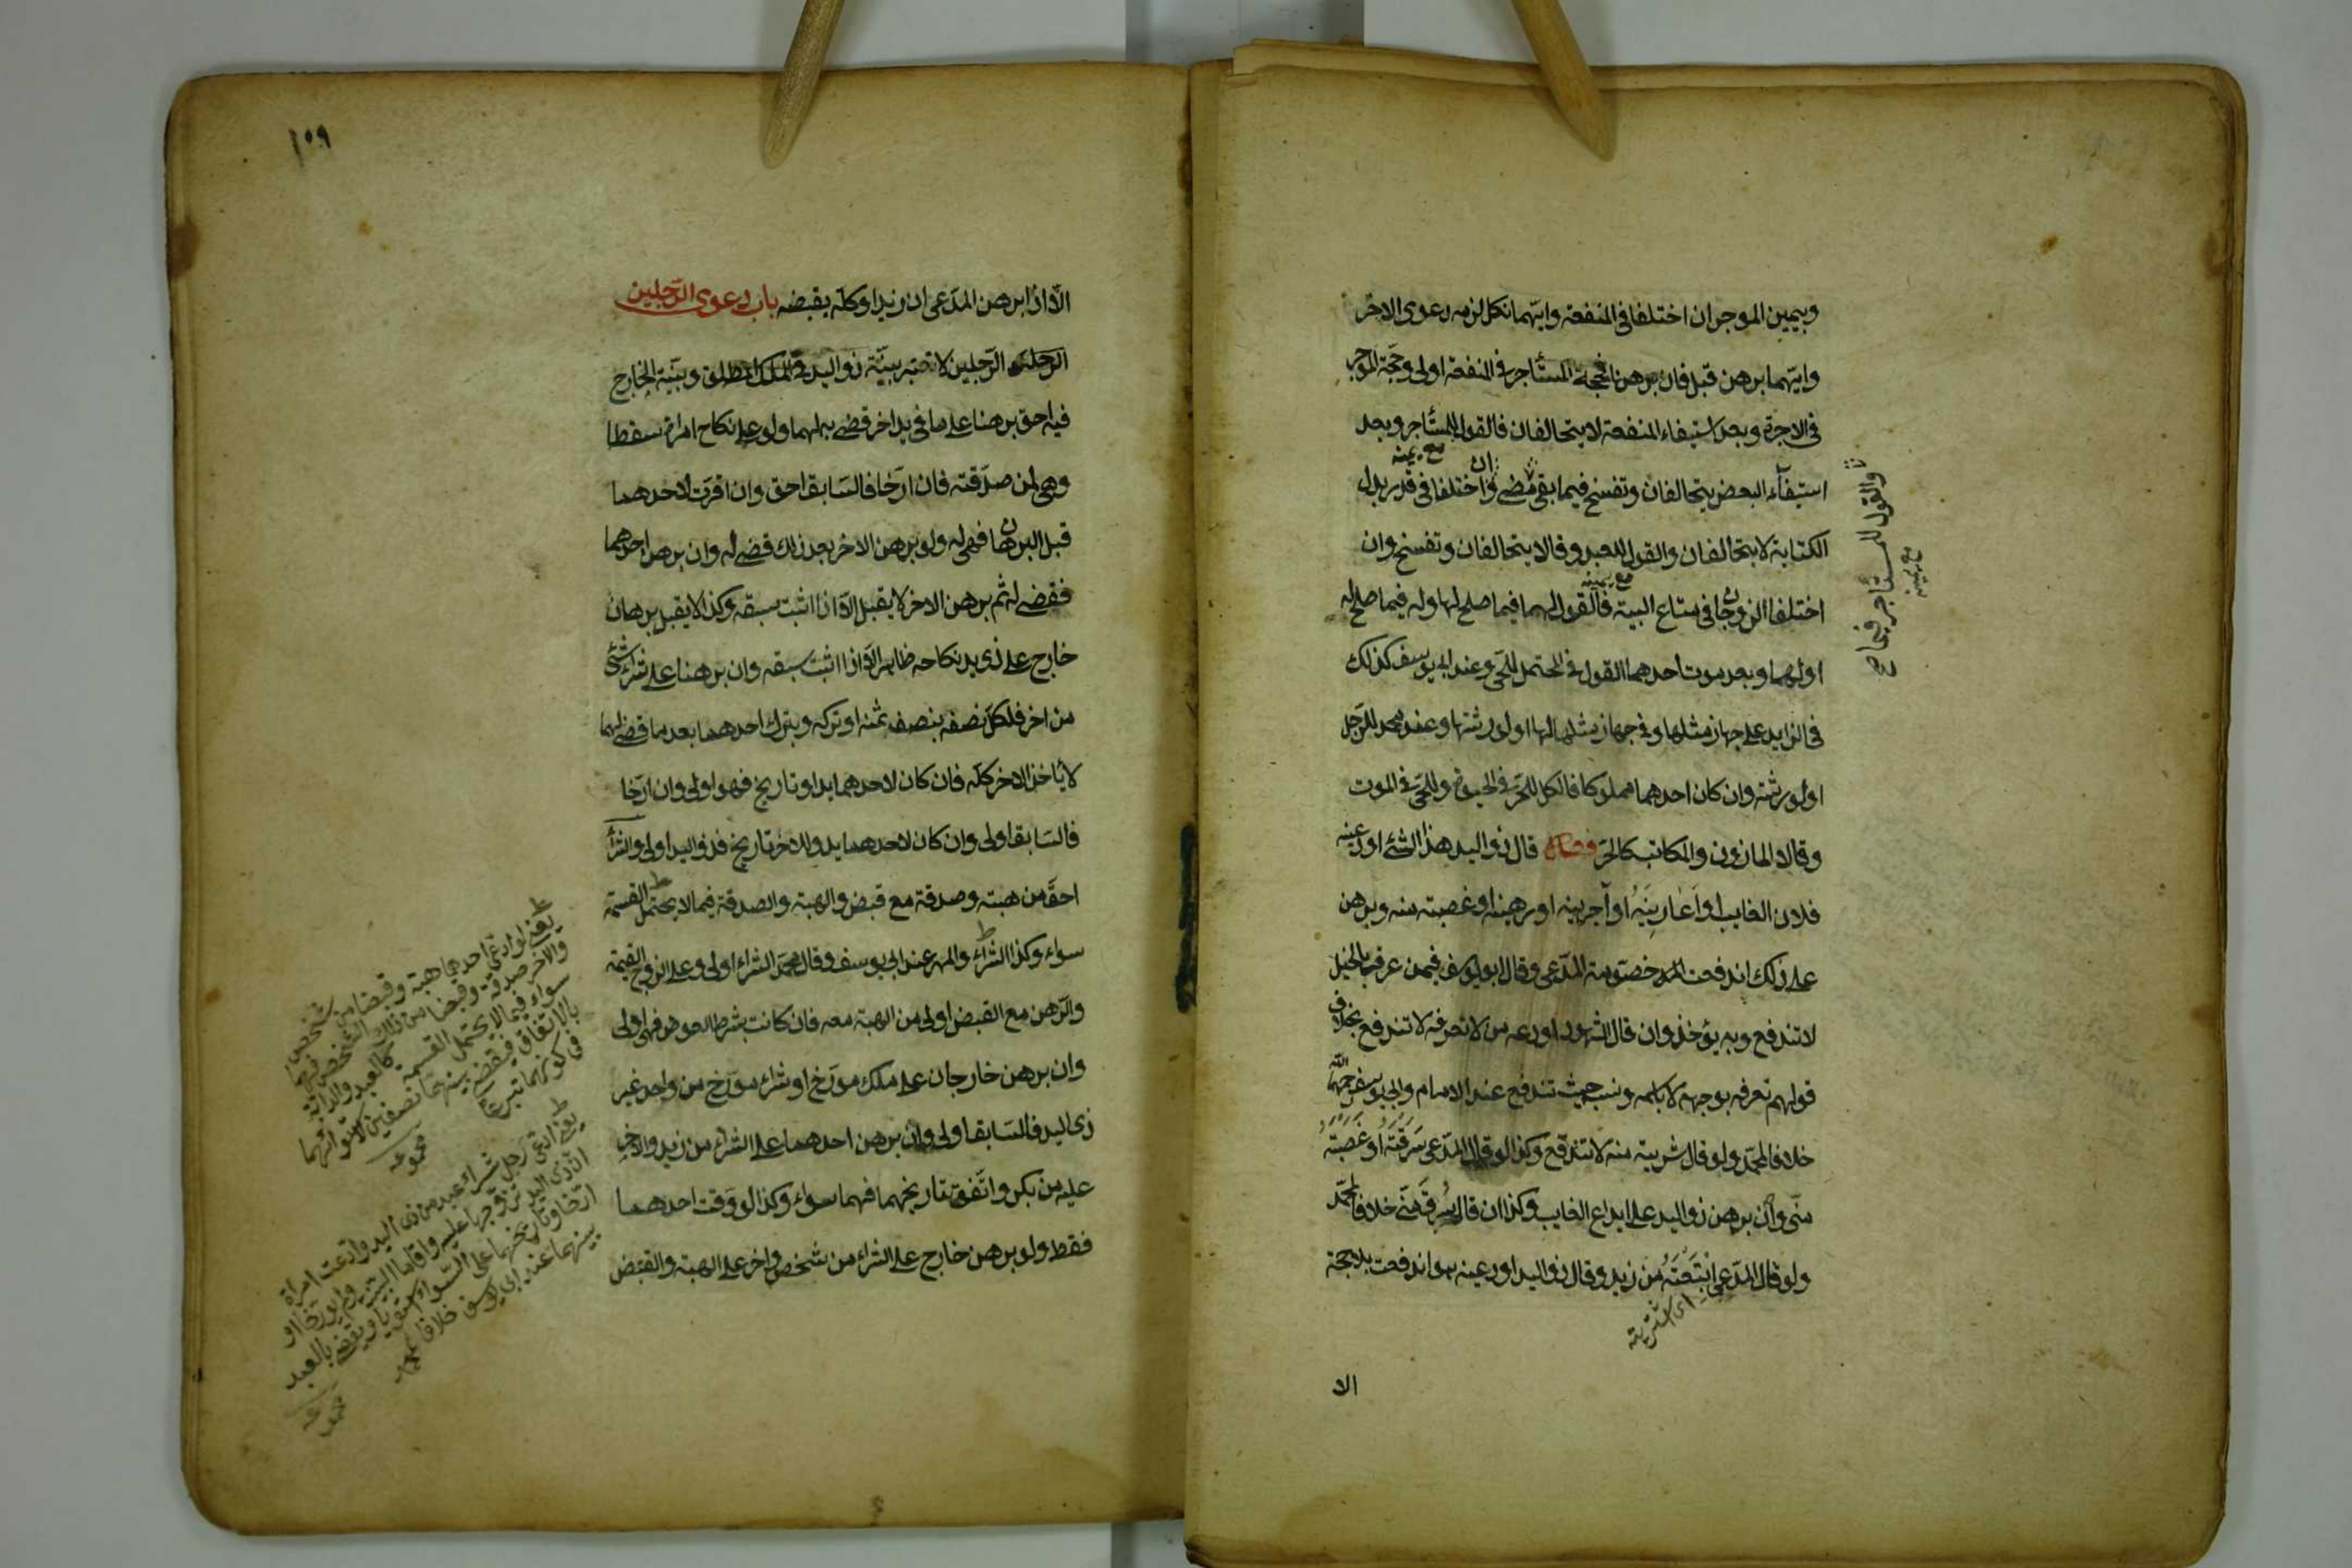 وبيمين الموجر ان اختلفا في المنفعة وايهما نكل لزمه دعوى الاخر
وايهما برهن قبل فان برهنا فحجة المستأجر في المنفعة اولى وحجة الموجر
في الاجرة وبعد استيفاء المنفعة لا يتحالفان فالقول للمستأجر وبعد
مع يمينه
استيفاء البعض يتحالفان وتفسخ فيما بقي مضى وان اختلفا في قدر بدل
والقول للمستأجر فيما
مع يمينه
الكتابة لا يتحالفان والقول للعبد وقالا يتحالفان وتفسخ وان
مع يمينه
اختلفا الزوجان في متاع البيت فالقول لهما فيما صلح لها وله فيما صلح له
او لهما وبعد موت احدهما القول في المحتمل للحي وعند ابي يوسف كذلك
في الزايد على جهاز مثلها وفي جهاز مثلها لها او لورثتها وعند محمد للرجل
او لورثته وان كان احدهما مملوكا فالكل للحر في الحيوة وللحي في الموت
وقالا المأذون والمكاتب كالحر فصل قال ذو اليد هذا الشئ اودعنيه
فلان الغايب او اعارنيه او آجرنيه او رهنيه او غصبته منه وبرهن
على ذلك اندفعت خصومة المدعي وقال ابو يوسف فيمن عرف بالحيل
لا تندفع وبه يؤخذ وان قال الشهود اودعه من لا نعرفه لا تندفع بخلاف
قولهم نعرفه بوجهه لا باسمه ونسبه حيث تندفع عند الامام وابي يوسف رحمهما الله
خلافا لمحمد ولو قال شريته منه لا تندفع وكذا لو قال المدعي سرقته او غصبته
مني وان برهن ذو اليد على ايداع الغايب وكذا ان قال سرق مني خلافا لمحمد
ولو قال المدعي ابتعته من زيد وقال ذو اليد اودعنيه هو اندفعت بلا حجة
اي اشتريته
الا
١٠٩
الا اذا برهن المدعي ان زيدا وكله بقبضه باب دعوى الرجلين
الرجلين لا تعتبر بينة ذو اليد في الملك المطلق وبينة الخارج
فيه احق برهنا على ما في يد اخر قضي به لهما ولو على نكاح امراة سقطا
وهي لمن صدقته فان ارخا فالسابق احق وان اقرت لاحدهما
قبل البرهان فهي له ولو برهن الاخر بعد ذلك قضي له وان برهن احدهما
فقضي له ثم برهن الاخر لا يقبل الا اذا اثبت سبقه وكذا لا يقبل برهان
خارج على ذي يد نكاحه ظاهر الا اذا اثبت سبقه وان برهنا على شراء شئ
من اخر فلكل نصفه بنصف ثمنه او تركه وبترك احدهما بعد ما قضي لهما
لا ياخذ الاخر كله فان كان لاحدهما يد او تاريخ فهو اولى وان ارخا
فالسابق اولى وان كان لاحدهما يد وللاخر تاريخ فذو اليد اولى والشراء
احق من هبته وصدقة مع قبض والهبة والصدقة فيما لا يحتمل القسمة
سواء وكذا الشراء والمهر عند ابي يوسف وقال محمد الشراء اولى وعلى الزوج القيمة
والرهن مع القبض اولى من الهبة معه فان كانت بشرط العوض فهي اولى
وان برهن خارجان على ملك مورخ او شراء مورخ من واحد غير
ذي اليد فالسابق اولى وان برهن احدهما على الشراء من زيد والاخر
عليه من بكر واتفق تاريخهما فهما سواء وكذا لو وقت احدهما
فقط ولو برهن خارج على الشراء من شخص واخر على الهبة والقبض
يعني لو ادعى احدهما هبة وقبضا من شخص
والاخر صدقة وقبضا من ذلك الشخص فهما
سواء فيما لا يحتمل القسمة كالعبد والدابة
بالاتفاق فيقضى بينهما نصفين لاستوائهما
في كونهما تبرعا
يعني ادعى رجل شراء عبد من ذي اليد وادعت امراة
ان ذي اليد تزوجها عليه واقاما البينة ولم يورخا او
ارخا وتاريخهما على السواء استويا ويقضى بالعبد
بينهما عند ابي يوسف خلافا لمحمد